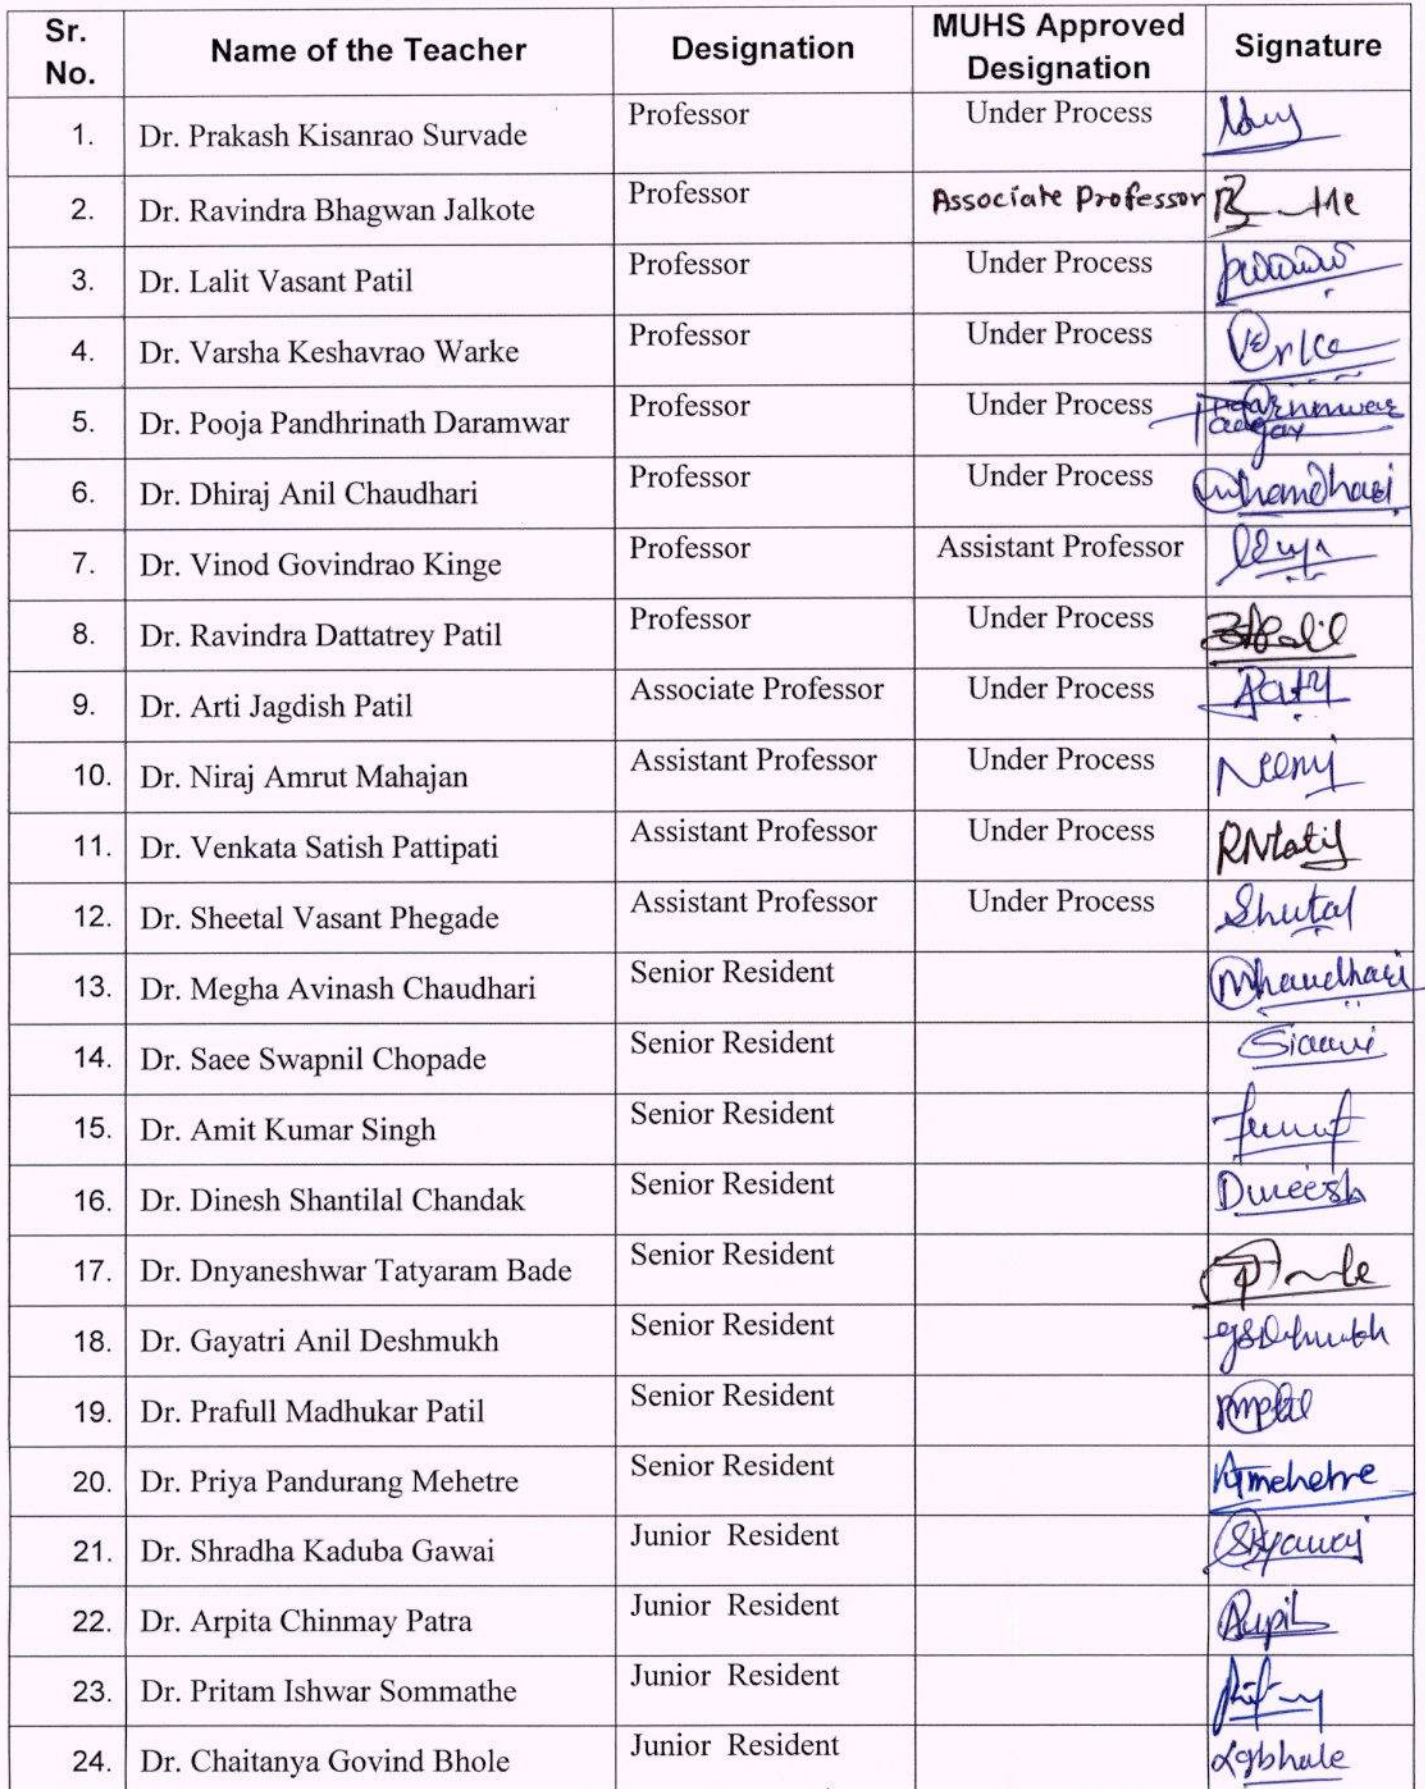 Sr. No. Name of the Teacher Designation MUHS Approved Designation Signature
1. Dr. Prakash Kisanrao Survade Professor Under Process
2. Dr. Ravindra Bhagwan Jalkote Professor Associate Professor
3. Dr. Lalit Vasant Patil Professor Under Process
4. Dr. Varsha Keshavrao Warke Professor Under Process
5. Dr. Pooja Pandhrinath Daramwar Professor Under Process
6. Dr. Dhiraj Anil Chaudhari Professor Under Process
7. Dr. Vinod Govindrao Kinge Professor Assistant Professor
8. Dr. Ravindra Dattatrey Patil Professor Under Process
9. Dr. Arti Jagdish Patil Associate Professor Under Process
10. Dr. Niraj Amrut Mahajan Assistant Professor Under Process
11. Dr. Venkata Satish Pattipati Assistant Professor Under Process
12. Dr. Sheetal Vasant Phegade Assistant Professor Under Process
13. Dr. Megha Avinash Chaudhari Senior Resident
14. Dr. Saee Swapnil Chopade Senior Resident
15. Dr. Amit Kumar Singh Senior Resident
16. Dr. Dinesh Shantilal Chandak Senior Resident
17. Dr. Dnyaneshwar Tatyaram Bade Senior Resident
18. Dr. Gayatri Anil Deshmukh Senior Resident
19. Dr. Prafull Madhukar Patil Senior Resident
20. Dr. Priya Pandurang Mehetre Senior Resident
21. Dr. Shradha Kaduba Gawai Junior Resident
22. Dr. Arpita Chinmay Patra Junior Resident
23. Dr. Pritam Ishwar Sommathe Junior Resident
24. Dr. Chaitanya Govind Bhole Junior Resident